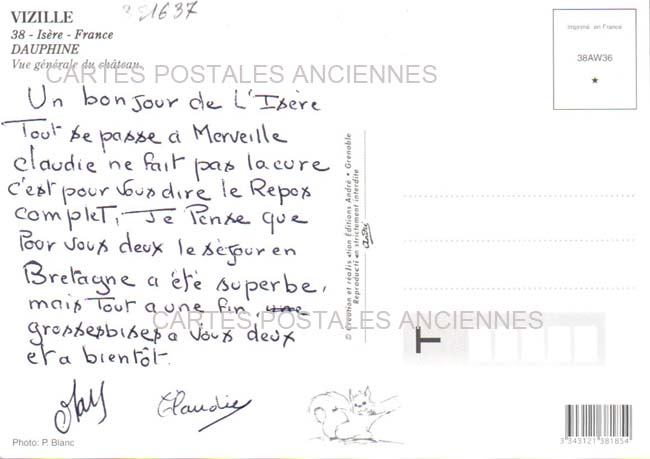 VIZILLE
38 - Isère - France
DAUPHINE
Vue générale du château.
1637
CARTES POSTALES ANCIENNES
Un bonjour de L'Isère
Tout se passe à Merveille
claudie ne fait pas la cure
c'est pour vous dire le Repos
complet, Je Pense que
Pour vous deux le séjour en
Bretagne a été superbe,
mais Tout a une fin,
grosses bises a Vous deux
et a bientôt.
CARTES POSTALES ANCIENNES
Claudie
Photo: P. Blanc
© Création et réalisation Éditions André • Grenoble
Reproduction strictement interdite
André
Imprimé en France
38AW36
3 343121 381854